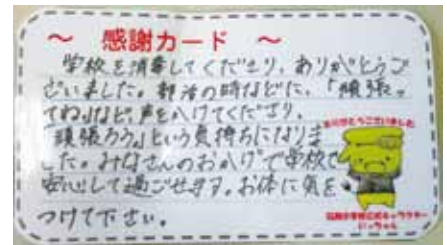 ～ 感謝カード ～
学校を消毒してくださり、ありがとうご
ざいました。部活の時などに、「頑張っ
てね」など声をかけてくださり、
「頑張ろう」という気持ちになりま
した。みなさんのおかげで学校で
安心して過ごせます。お体に気を
つけて下さい。
ありがとうございました
小学校公式キャラクター
いっちゃん